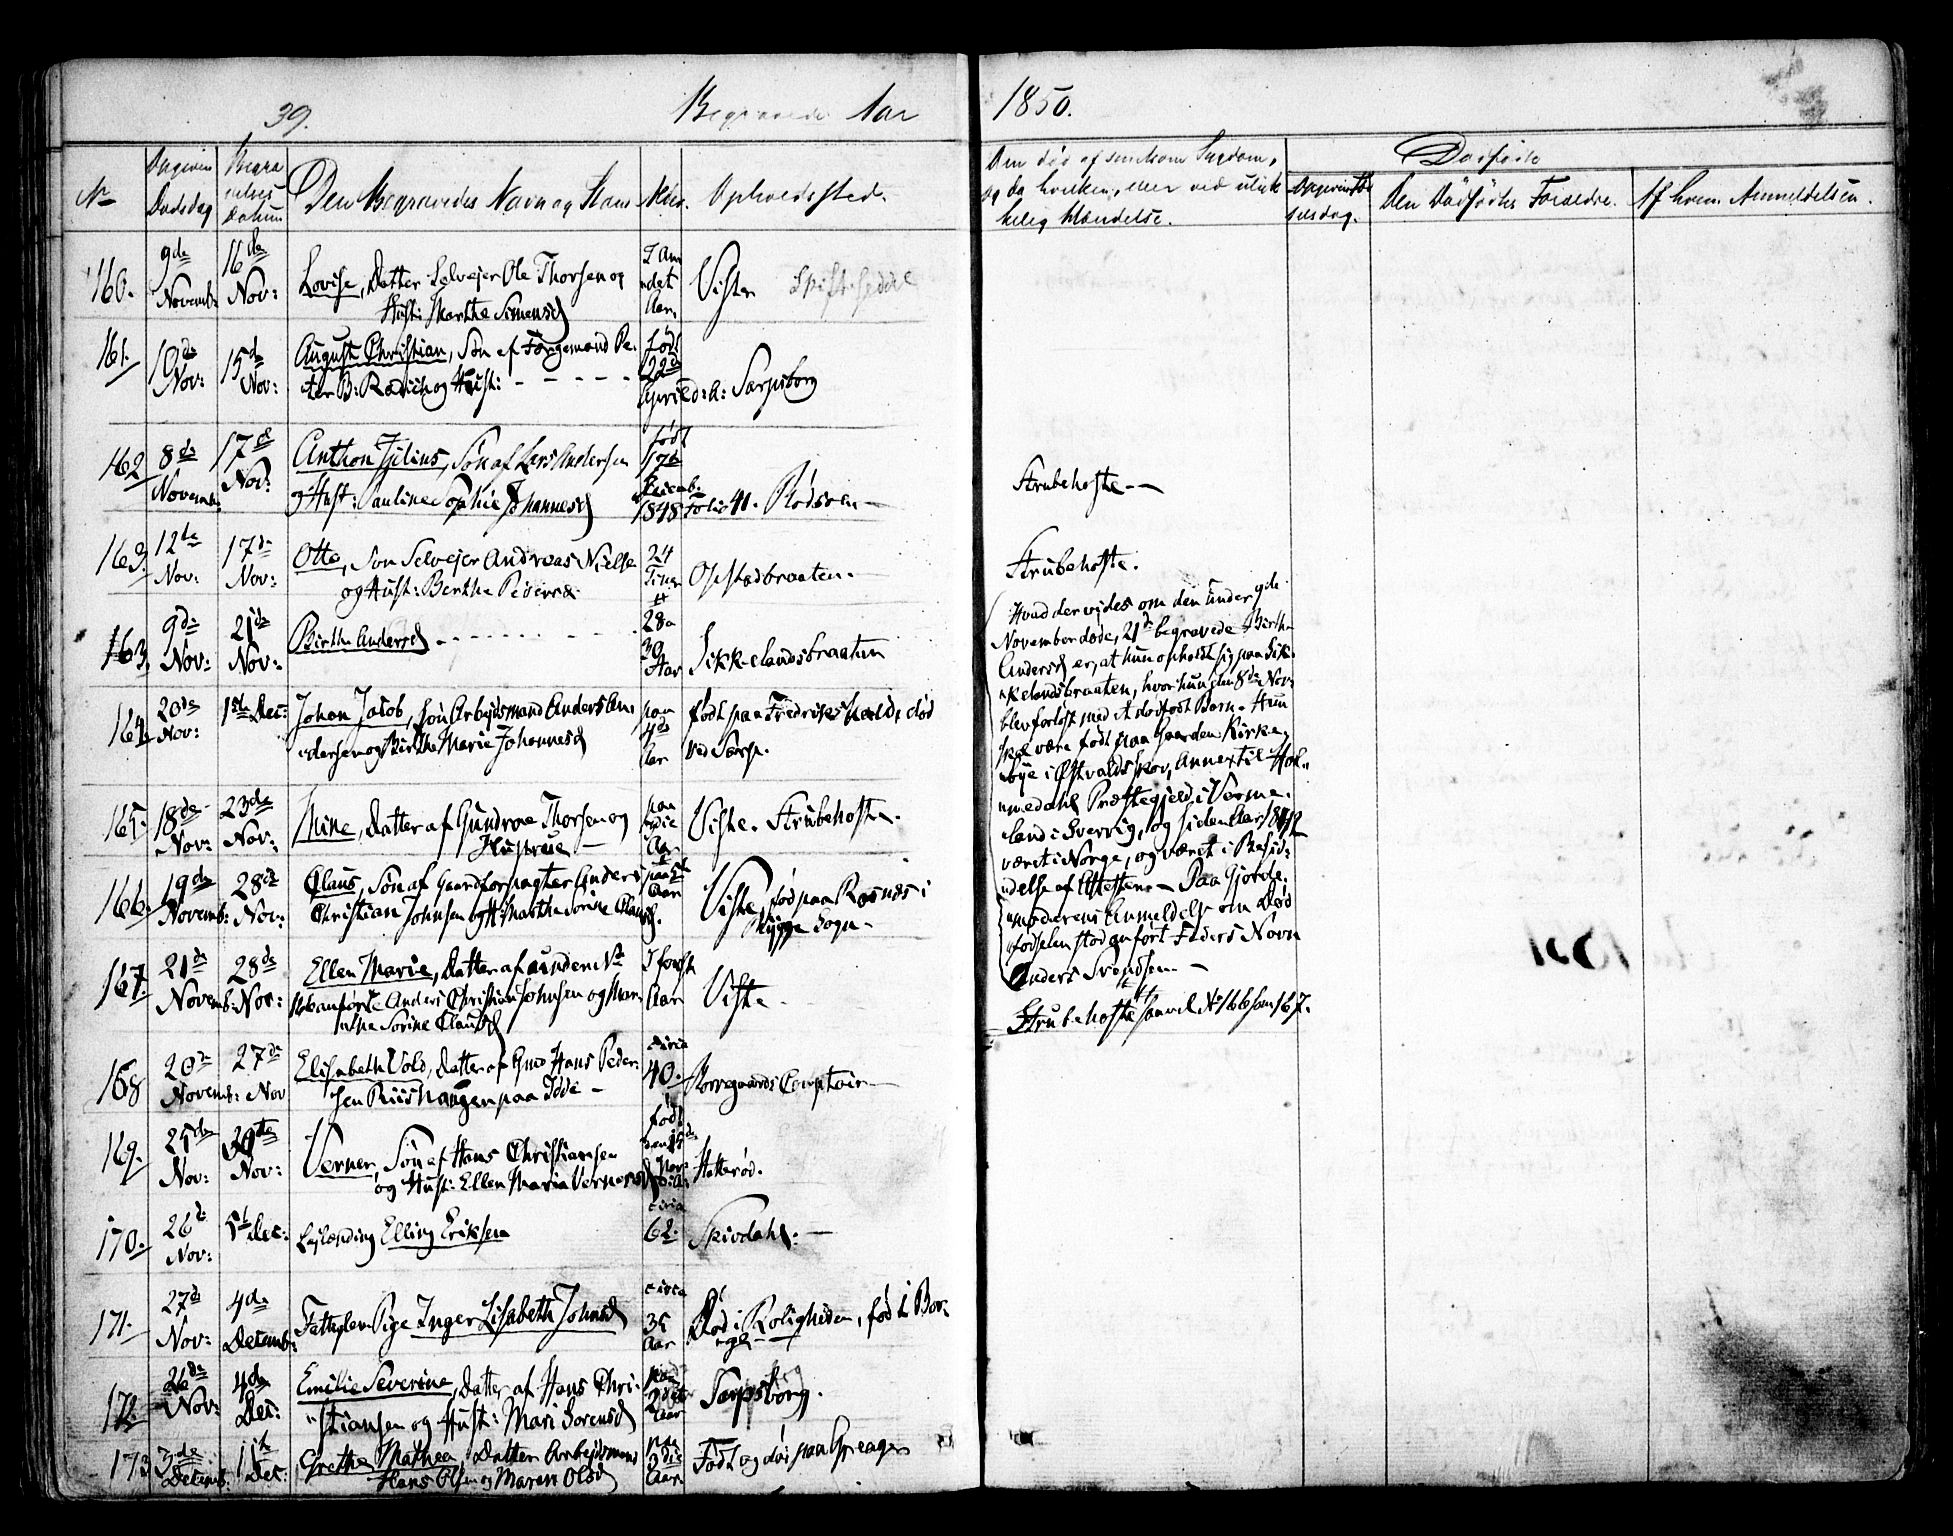 39.
Begravede Aar 1850.
No
Opgiven Dødsdag
Begravelses Datum
Den Begravedes Navn og Stand
Alder.
Opholdssted.
Den død af smitsom Sygdom,
og da hvilken, eller ved ulyk-
kelig Hændelse.
Dødfødte
Opgiven Fødselsdag.
Den Dødfødtes Forældre.
Af hvem Anmeldelsen.
160.
9de Novemb:
16de Nov:
Lovise, Datter Selvejer Ole Thorsen og
Hust: Marthe Simensd
Aar.
Viste
Skifteseddel
161.
10de Nov:
15de Nov:
August Christian, Søn af Færgemand Pe-
ter B: og Hust: - - - - -
født
22de
April d: A:
Sarpsborg
162
8de Novemb:
17de Nov:
Anthon Julius, Søn af Lars Andersen
og Hust: Pauline Sophie Johannesd
født
17de
Decemb:
1848 Folio 41.
Rødsven —
Strubehoste. —
163.
12te Nov:
17de Nov:
Otte, Søn Selvejer Andreas Nielse
og Hust: Berthe Pedersd
24
Timer
Opstadbraaten.
Strubehoste.
163.
9de Nov:
21de Nov:
Birthe Andersd - - - - - -
28 a
30
Aar
Sikkelandsbraaten
Hvad der vides om den under 9de
November døde, 21de begravede Birthe
Andersd er, at hun opholdt sig paa Sik-
kelandsbraaten, hvor hun den 8de Nov:
blev forløst med et dødfødt Barn. Hun
skal være født paa Gaarden Kirke-
bye i Østvaldsskov, Annex til Hol-
medahls Præstegjeld i Verme-
land i Sverrig, og siden Aar 1842
været i Norge, og været i Besid-
delse af Attester. — Paa Gjorde-
moderens Anmeldelse om Død-
fødselen stod anført Faders Navn
Anders Svendsen. —
164.
20de Nov:
1ste Dec:
Johan Jacob, Søn Arbejdsmand Anders An-
dersen og Birthe Marie Johannesd
paa
4de
Aar
født paa Fredrikshald, død
ved Sarp.
165.
18de Nov:
23de Nov:
Mine, Datter af Gundroe Thorsen og
Hustrue —
paa
Aar
Viste. Strubehoste.
166.
19de Novemb:
28de Nov:
Claus, Søn af Gaardforpagter Anders
Christian Johnsen og H: Marthe Sorine Clausd.
Aar
Viste, fød paa Rosnæs i
Rygge Sogn. -
167.
21de Novemb:
28de Nov:
Ellen Marie, Datter af under No
166 anførte Anders Christian Johnsen og Mar-
the Sorine Clausd
3 
Aar
Viste.
Strubehoste saavel No 166 som 167.
168
20de Novemb:
27de Nov
Elisabeth Vold, Datter af Gmd Hans Peder-
sen Riishaugen paa Idde —
circa
40.
Borregaards Comptoir —
169.
25de Nov:
30te Nov:
Verner, Søn af Hans Christiansen
og Hust: Ellen Maria Vernersd
født
den 15de
Hatterød.
170.
26de Nov:
5te Dec:
Løslænding Elling Eriksen
circa
62.
Skivdahl. —
171.
27de Nov:
4de Decemb:
Fattiglem Pige Inger Lisabeth Johnsd
circa
35
Aar
Død i Roligheden, fød i Bor-
rge. —
172.
26de Nov:
4de Dec:
Emilie Severine, Datter af Hans Chri-
stiansen og Hust: Mari Sorensd
paa
2det
Aar
Sarpsborg.
173
3de Decemb:
11te Dec:
Grethe Mathea, Datter Arbejdsmand
Hans Olsen og Maren Olsd
paa
3die
Aar
Født og død paa Greager